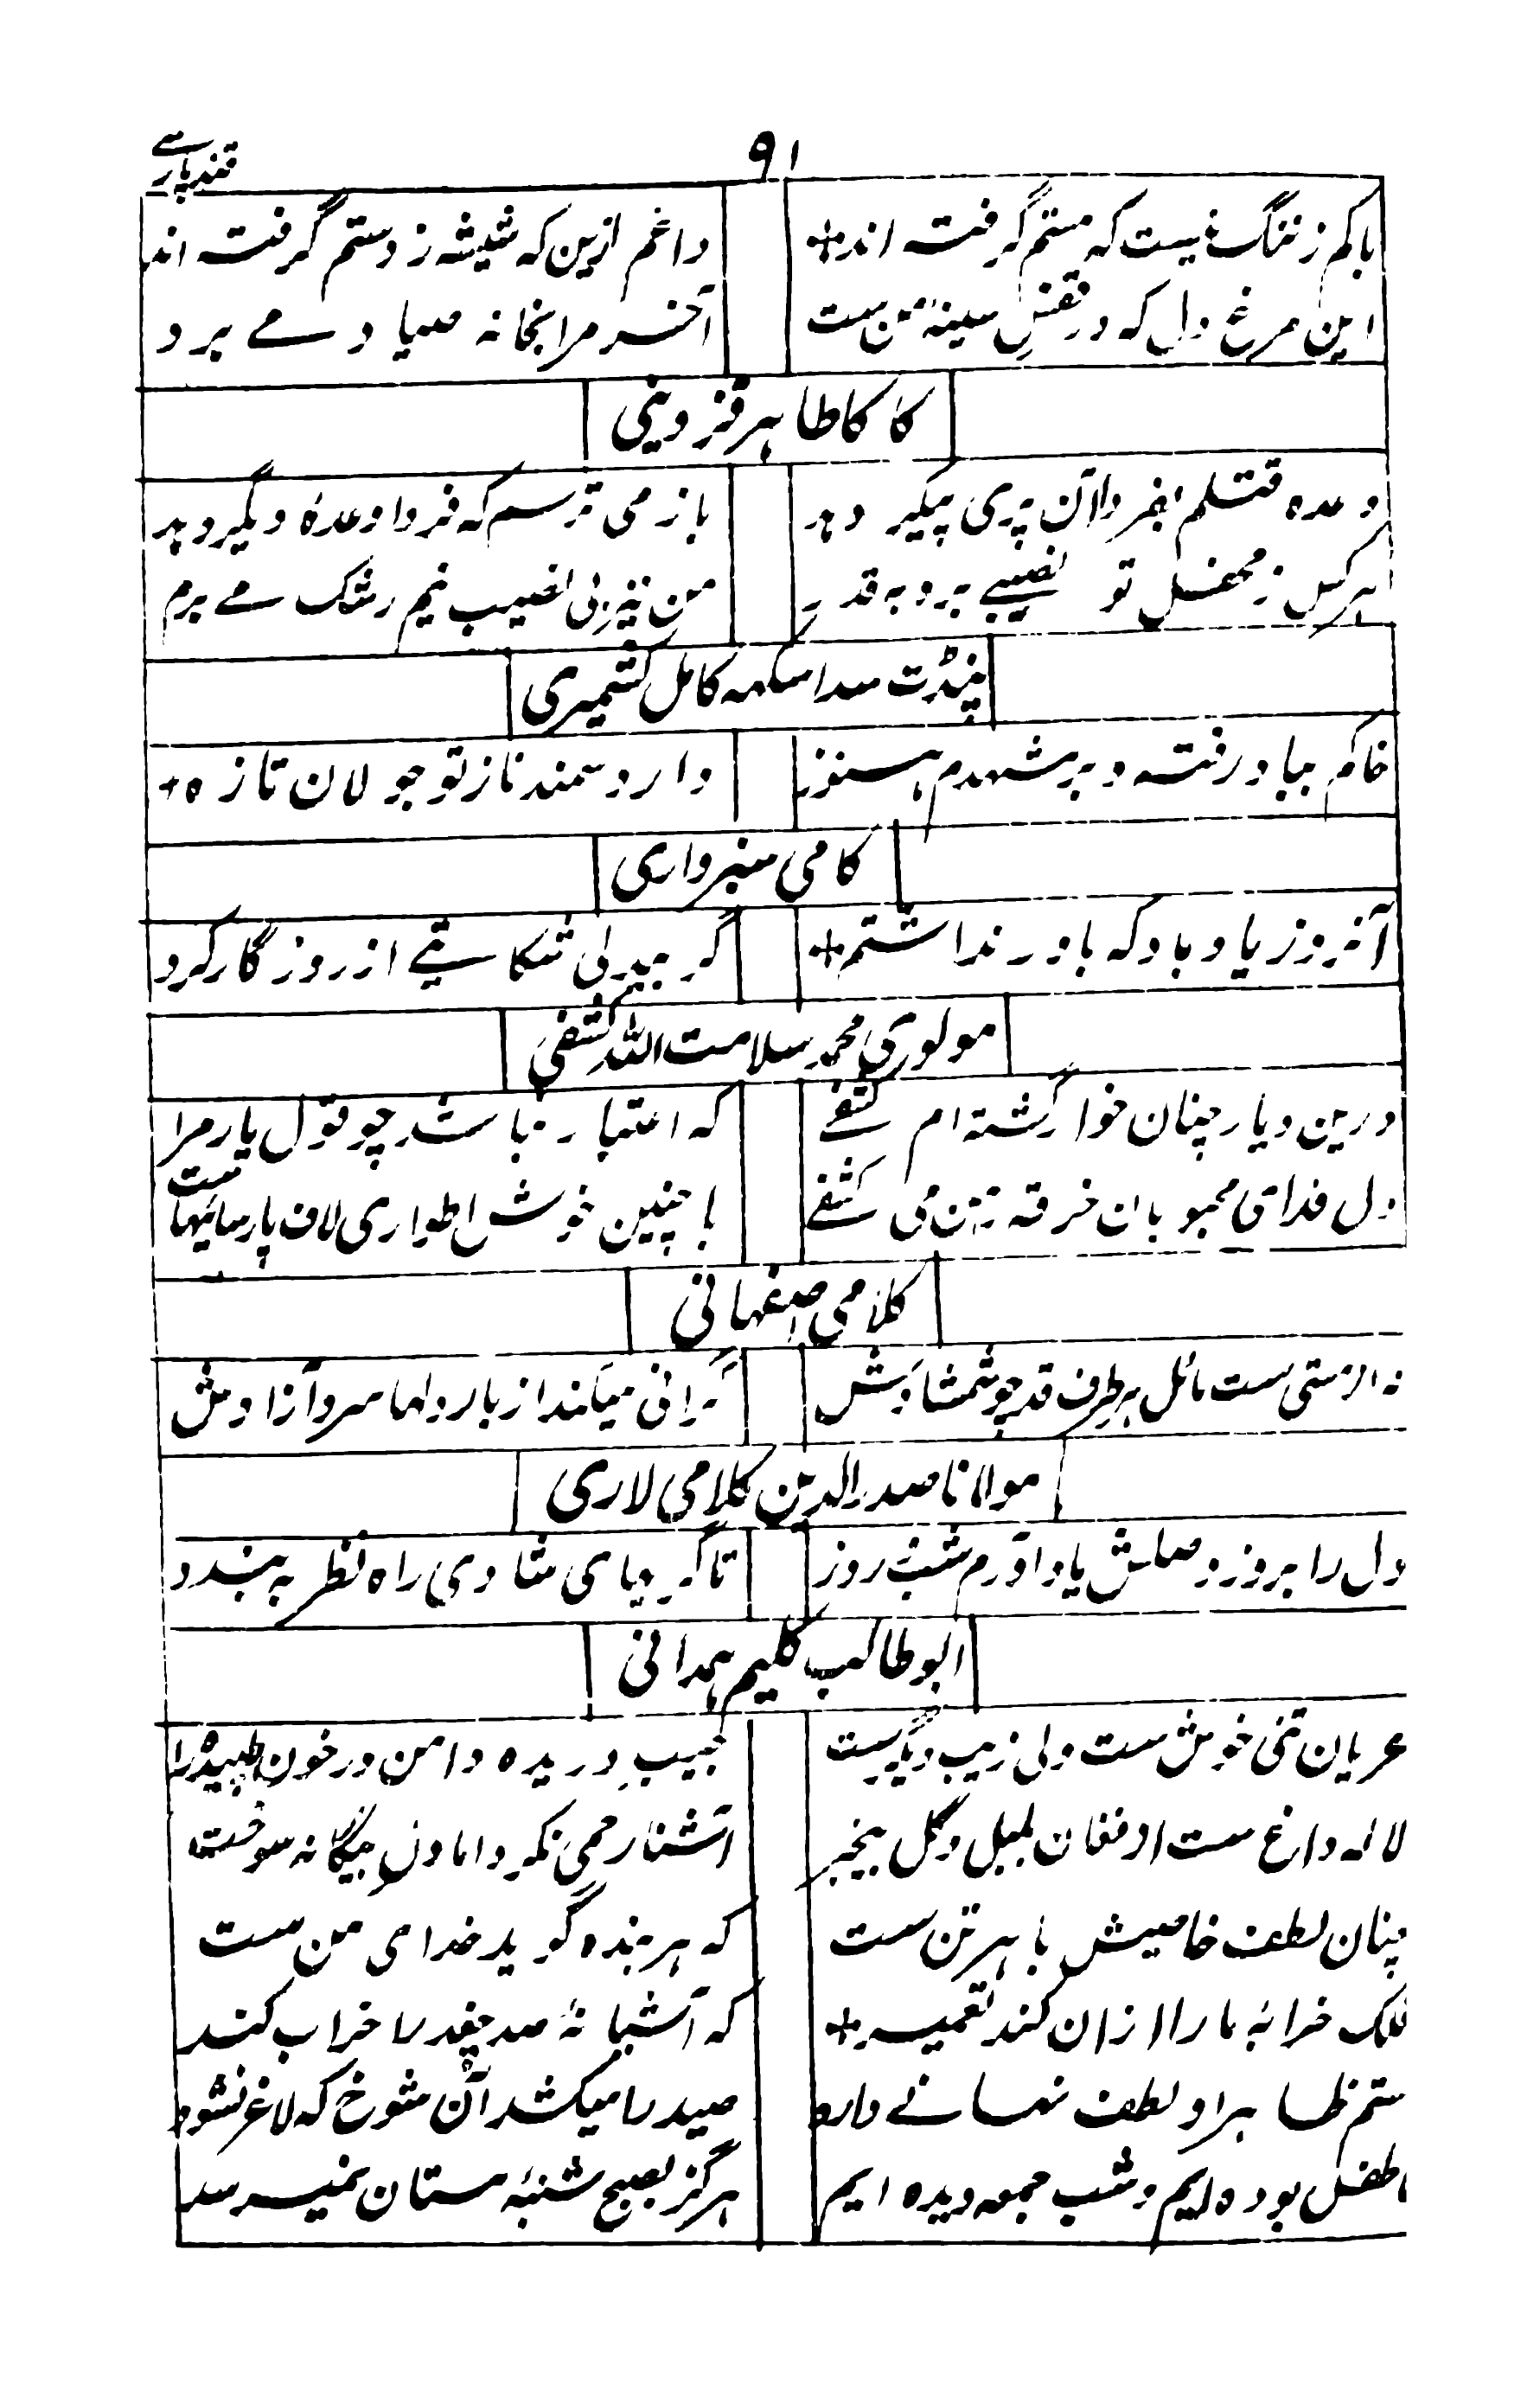 ۹۱
قند پارسے
باکم ز ننگ نیست که مستم گرفته اند+ داغم ازین که شیشه ز دستم گرفته اند
این مرغ دل که در قفسِ سینۂ من ست آخر مرا بخانه صیاد مے برد
کاکا طاهر قزوینی
وعده قتلم بفردا آن پری پیکر دهد باز می ترسم که فردا وعدۂ دیگر دهد
هر کس ز محفل تو نصیبے برد به قدر من نیز بی نصیب نیم رشک مے برم
پنڈت سداسکهه کامل کشمیری
خاکم بباد رفته و بر مشهدم هنوز دارد سمند ناز تو جولان تازه+
کامی سبزواری
آنروز یاد باد که باور نداشتم+ گر بیدلی شکایتے از روزگار کرد
مولوی محمد سلامت الله کشفی
درین دیار چنان خوار گشته ام کشفے که اعتبار نباشد چو قول یار مرا
دل فدای محبوبان خرقه تن می کشفے با چنین خوش اطواری لاف پارسائیهاست
کلامی اصفهانی
نه از مستی ست مائل هر طرف قد چو شمشادش گرانی میکند از بار دلها سرو آزادش
مولانا صدرالدین کلامی لاری
دل را بروز وصلش یاد آورم شب روز تا گریهای شادی راه نظر به بندد
ابوطالب کلیم همدانی
عریان تنی خوش ست ولی زیب دیگرست جیبِ دریده دامن در خون طپیده را
لاله داغ ست از فغان بلبل و گل بیخبر آشنا رحمی نکرد اما دل بیگانه سوخت
چنان لطف خاصیش با هر تن ست که هر بنده گوید خدای من ست
فلک خرابۂ ما را ازان کند تعمیر+ که آشیانۂ صد جغد را خراب کند
ستم ظاهر او لطف نهانے دارد صید را میکشد آن شوخ که لاغر نشود
طفل بوده ایم و شب جمعه دیده ایم هرگز بصبح شنبۂ مستان نمیرسد